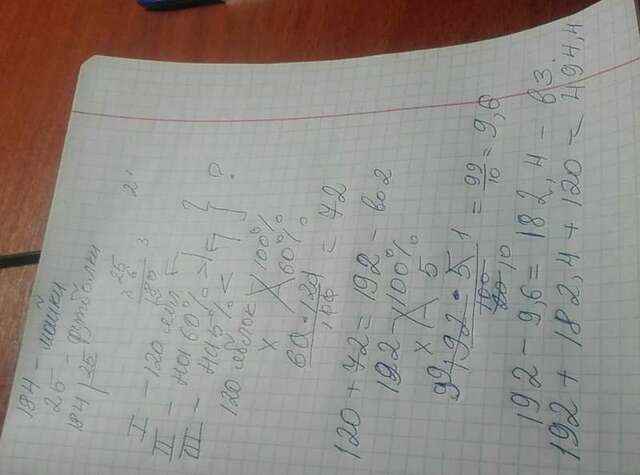 184 - майки
25 - футболки
184 | 25
I - 120 ябл
II - на 60% > I
III - на 5% < II
} ?
120 яблок 100%
x 60%
60 · 120
100
= 72
120 + 72 = 192 - во 2
192 100%
x 5
192 · 5
100
= 99
10
= 9,6
192 - 9,6 = 182,4 - в 3.
192 + 182,4 + 120 = 494,4